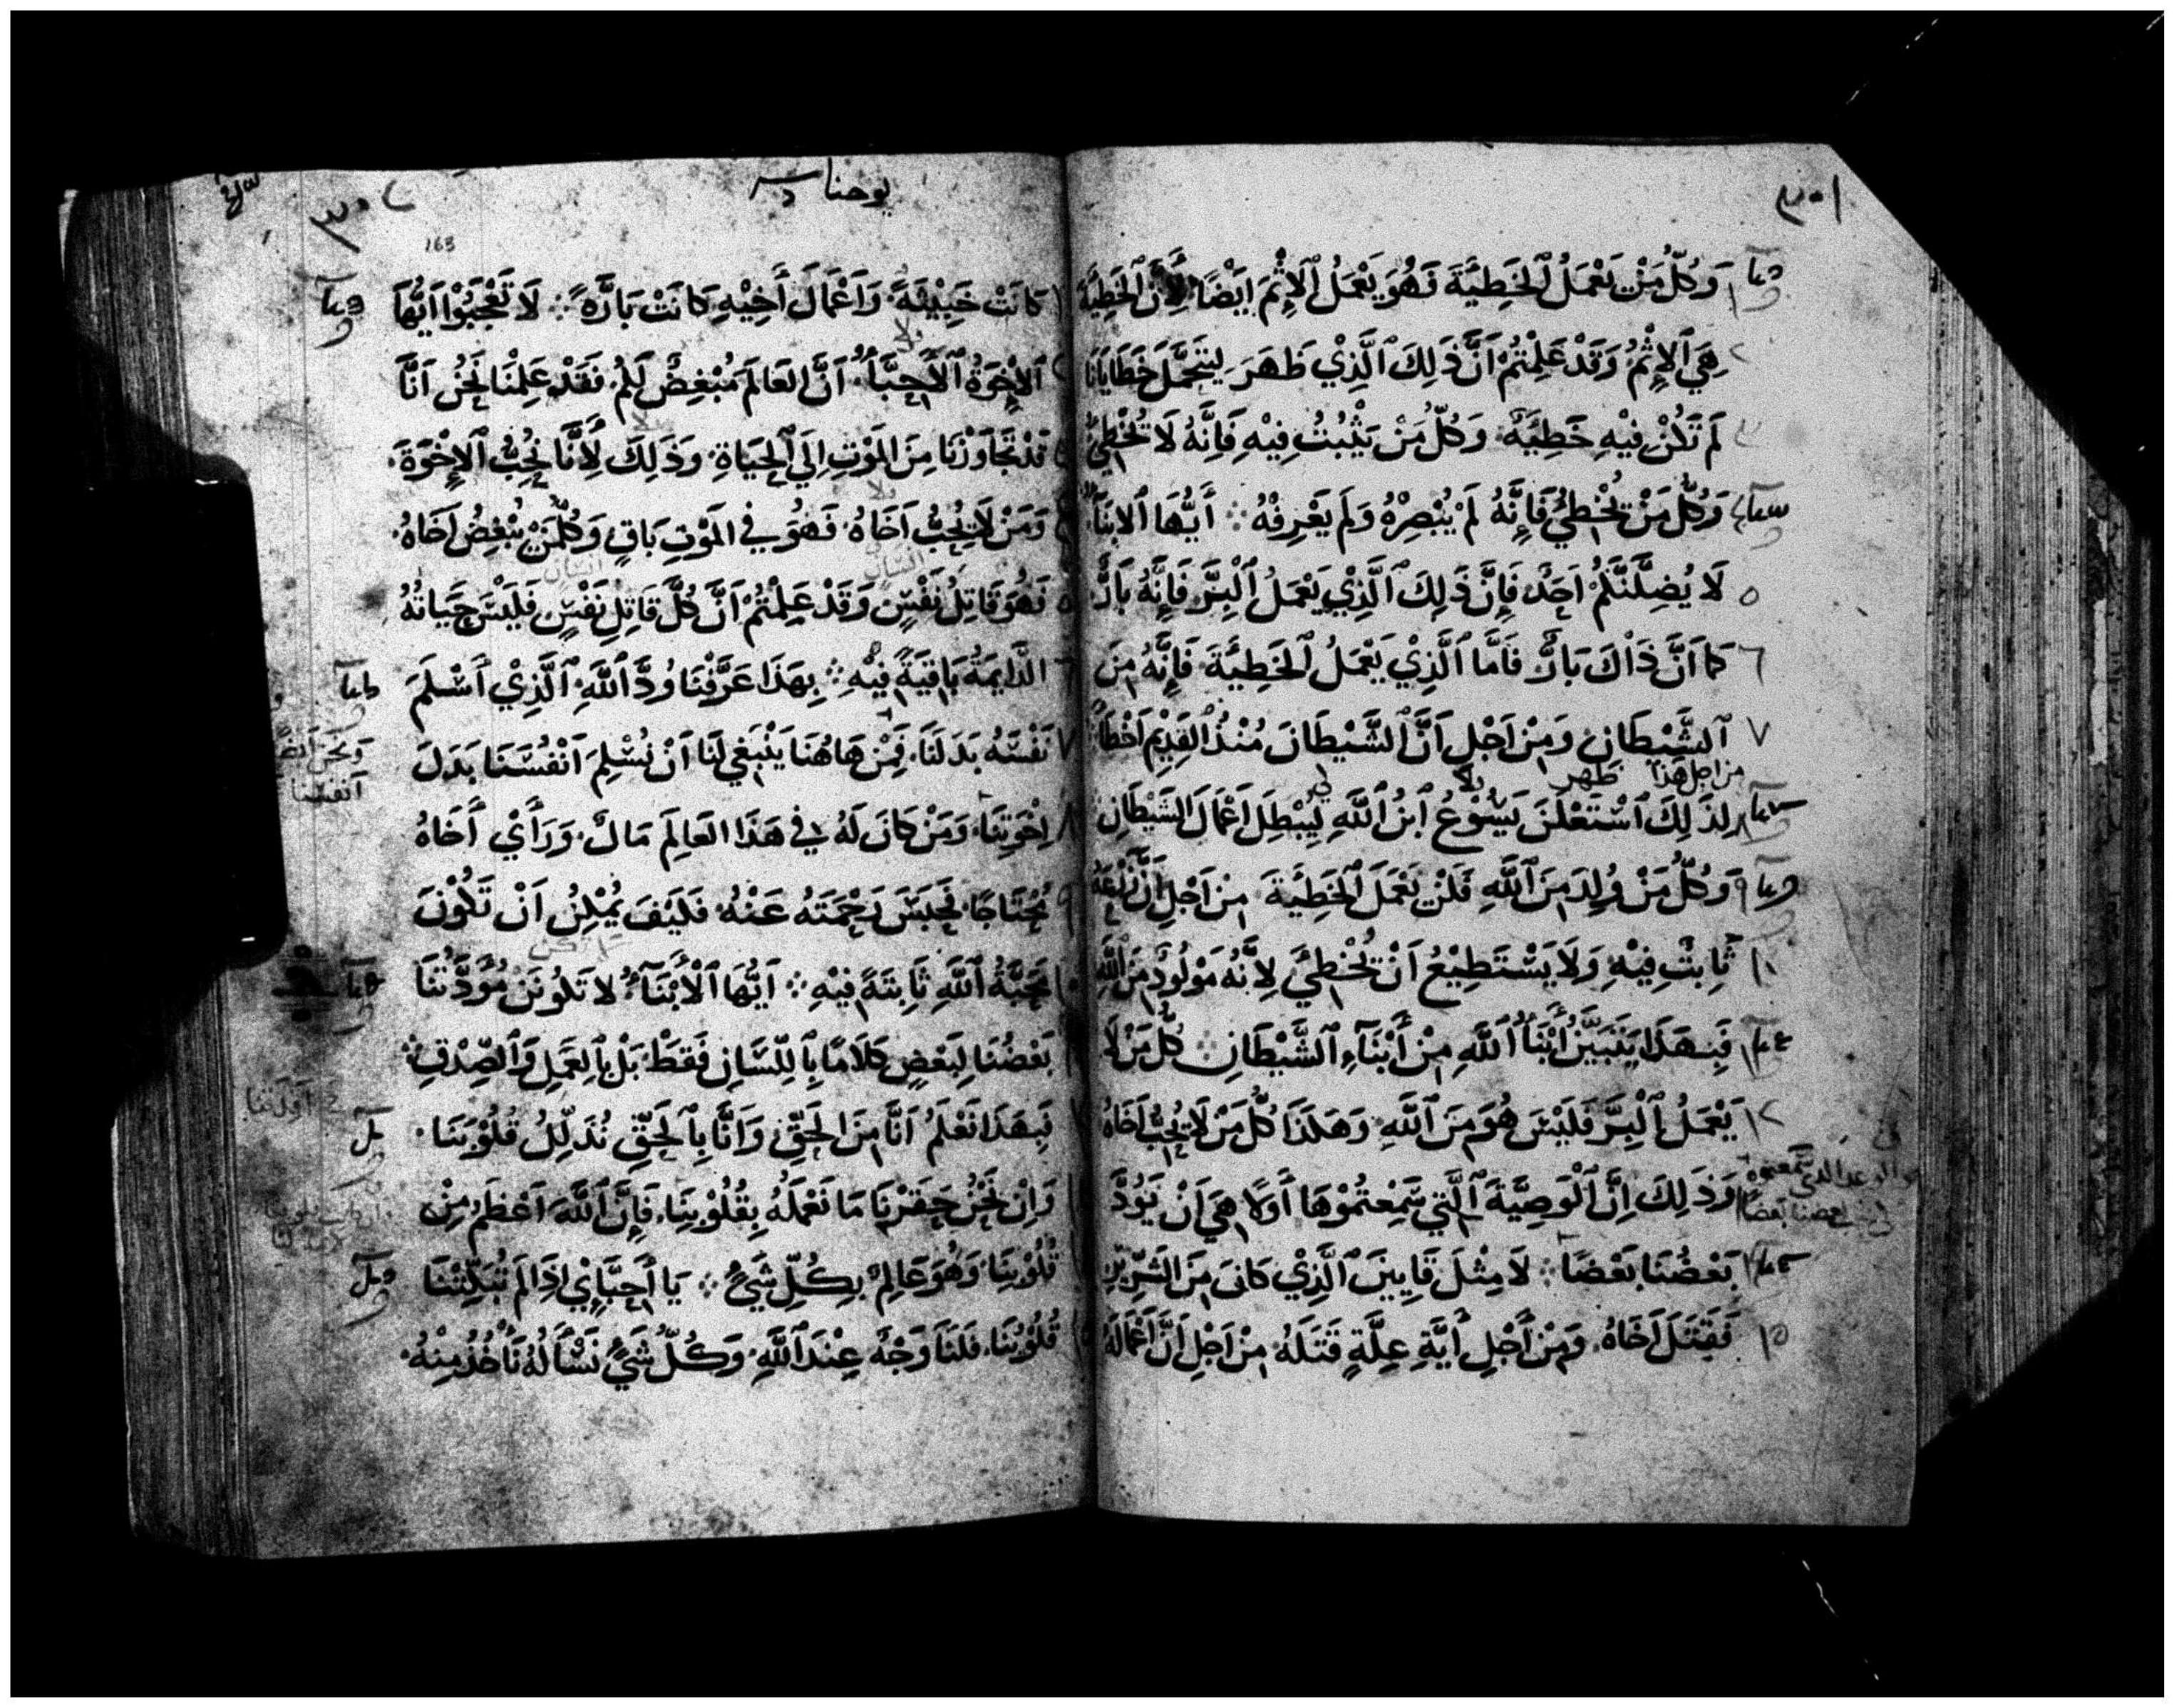 وَكُلُّ مَنْ يَعْمَلُ ٱلْخَطِيَّةَ فَهُوَ يَعْمَلُ ٱلْإِثْمَ اَيْضًا لِأَنَّ ٱلْخَطِيَّةَ
هِيَ ٱلْإِثْمُ وَقَدْ عَلِمْتُمْ اَنَّ ذَلِكَ ٱلَّذِيْ ظَهَرَ لِيَتَحَمَّلَ خَطَايَانَا
لَمْ تَكُنْ فِيْهِ خَطِيَّةٌ وَكُلُّ مَنْ يَثْبُتُ فِيْهِ فَاِنَّهُ لَا يُخْطِئُ
وَكُلُّ مَنْ يُخْطِئُ فَاِنَّهُ لَمْ يُبْصِرْهُ وَلَمْ يَعْرِفْهُ ۞ أَيُّهَا ٱلْابْنَآءُ
لَا يُضِلَّنَّكُمْ اَحَدٌ فَاِنَّ ذَلِكَ ٱلَّذِيْ يَعْمَلُ ٱلْبِرَّ فَاِنَّهُ بَارٌّ
كَمَا اَنَّ ذَاكَ بَارٌّ فَاَمَّا ٱلَّذِيْ يَعْمَلُ ٱلْخَطِيَّةَ فَاِنَّهُ مِنَ
ٱلشَّيْطَانِ وَمِنْ اَجْلِ اَنَّ ٱلشَّيْطَانَ مُنْذُ ٱلْقَدِيْمِ اَخْطَأَ
من اجل هذا ظهر
لِذَلِكَ ٱسْتَعْلَنَ يَسُوْعُ ٱبْنُ ٱللَّهِ لِيُبْطِلَ اَعْمَالَ ٱلشَّيْطَانِ
وَكُلُّ مَنْ وُلِدَ مِنَ ٱللَّهِ فَلَنْ يَعْمَلَ ٱلْخَطِيَّةَ مِنْ اَجْلِ اَنَّ زَرْعَهُ
ثَابِتٌ فِيْهِ وَلَا يَسْتَطِيْعُ اَنْ يُخْطِئَ لِاَنَّهُ مَوْلُودٌ مِنَ ٱللَّهِ
فَبِهَذَا يَتَبَيَّنُ أَبْنَآءُ ٱللَّهِ مِنْ أَبْنَآءِ ٱلشَّيْطَانِ ۞ كُلُّ مَنْ لَا
يَعْمَلُ ٱلْبِرَّ فَلَيْسَ هُوَ مِنَ ٱللَّهِ وَهَكَذَا كُلُّ مَنْ لَا يُحِبُّ اَخَاهُ
وَذَلِكَ اِنَّ ٱلْوَصِيَّةَ ٱلَّتِي سَمِعْتُمُوْهَا أَوَّلًا هِيَ اَنْ يَوَدَّ
بَعْضُنَا بَعْضًا ۞ لَا مِثْلَ قَايِينَ ٱلَّذِيْ كَانَ مِنَ ٱلشِّرِّيْرِ
فَقَتَلَ اَخَاهُ وَمِنْ أَجْلِ أَيَّةِ عِلَّةٍ قَتَلَهُ مِنْ اَجْلِ اَنَّ اَعْمَالَهُ
يوحنا
163
كَانَتْ خَبِيْثَةً وَاَعْمَالَ أَخِيْهِ كَانَتْ بَارَّةً ۞ لَا تَعْجَبُوْا اَيُّهَا
ٱلْإِخْوَةُ ٱلْأَحِبَّآءُ اَنَّ ٱلْعَالَمَ مُبْغِضٌ لَكُمْ فَقَدْ عَلِمْنَا نَحْنُ اَنَّا
قَدْ تَجَاوَزْنَا مِنَ ٱلْمَوْتِ اِلَى ٱلْحَيَاةِ وَذَلِكَ لِأَنَّا نُحِبُّ ٱلْإِخْوَةَ
وَمَنْ لَا يُحِبُّ اَخَاهُ فَهُوَ فِي ٱلْمَوْتِ بَاقٍ وَكُلُّ مَنْ يُبْغِضُ اَخَاهُ
فَهُوَ قَاتِلُ نَفْسٍ وَقَدْ عَلِمْتُمْ اَنَّ كُلَّ قَاتِلِ نَفْسٍ فَلَيْسَ حَيَاتُهُ
ٱلدَّايِمَةُ بَاقِيَةً فِيْهِ ۞ بِهَذَا عَرَّفَنَا وُدَّ ٱللَّهِ ٱلَّذِيْ أَسْلَمَ
نَفْسَهُ بَدَلَنَا فَمِنْ هَاهُنَا يَنْبَغِي لَنَا اَنْ نُسْلِمَ اَنْفُسَنَا بَدَلَ
اِخْوَتِنَا وَمَنْ كَانَ لَهُ فِي هَذَا ٱلْعَالَمِ مَالٌ وَرَأَيْ أَخَاهُ
مُحْتَاجًا فَحَبَسَ رَحْمَتَهُ عَنْهُ فَكَيْفَ يُمْكِنُ اَنْ تَكُوْنَ
مَحَبَّةُ ٱللَّهِ ثَابِتَةً فِيْهِ ۞ اَيُّهَا ٱلْأَبْنَآءُ لَا تَكُونَنَّ مُوَدَّتُنَا
بَعْضُنَا لِبَعْضٍ كَلَامًا بِٱللِّسَانِ فَقَطْ بَلْ بِٱلْعَمَلِ وَٱلصِّدْقِ ۞
فَبِهَذَا نَعْلَمُ اَنَّا مِنَ ٱلْحَقِّ وَاَنَّا بِٱلْحَقِّ نُدَلِّلُ قُلُوْبَنَا
وَاِنْ نَحْنُ حَقَرْنَا مَا نَعْمَلُهُ بِقُلُوْبِنَا فَاِنَّ ٱللَّهَ اَعْظَمُ مِنْ
قُلُوْبِنَا وَهُوَ عَالِمٌ بِكُلِّ شَيْءٍ ۞ يَا أَحِبَّايْ اِذَا لَمْ تُبَكِّتْنَا
قُلُوْبُنَا فَلَنَا وَجْهٌ عِنْدَ ٱللَّهِ وَكُلُّ شَيْءٍ نَسْأَلُهُ نَأْخُذُ مِنْهُ